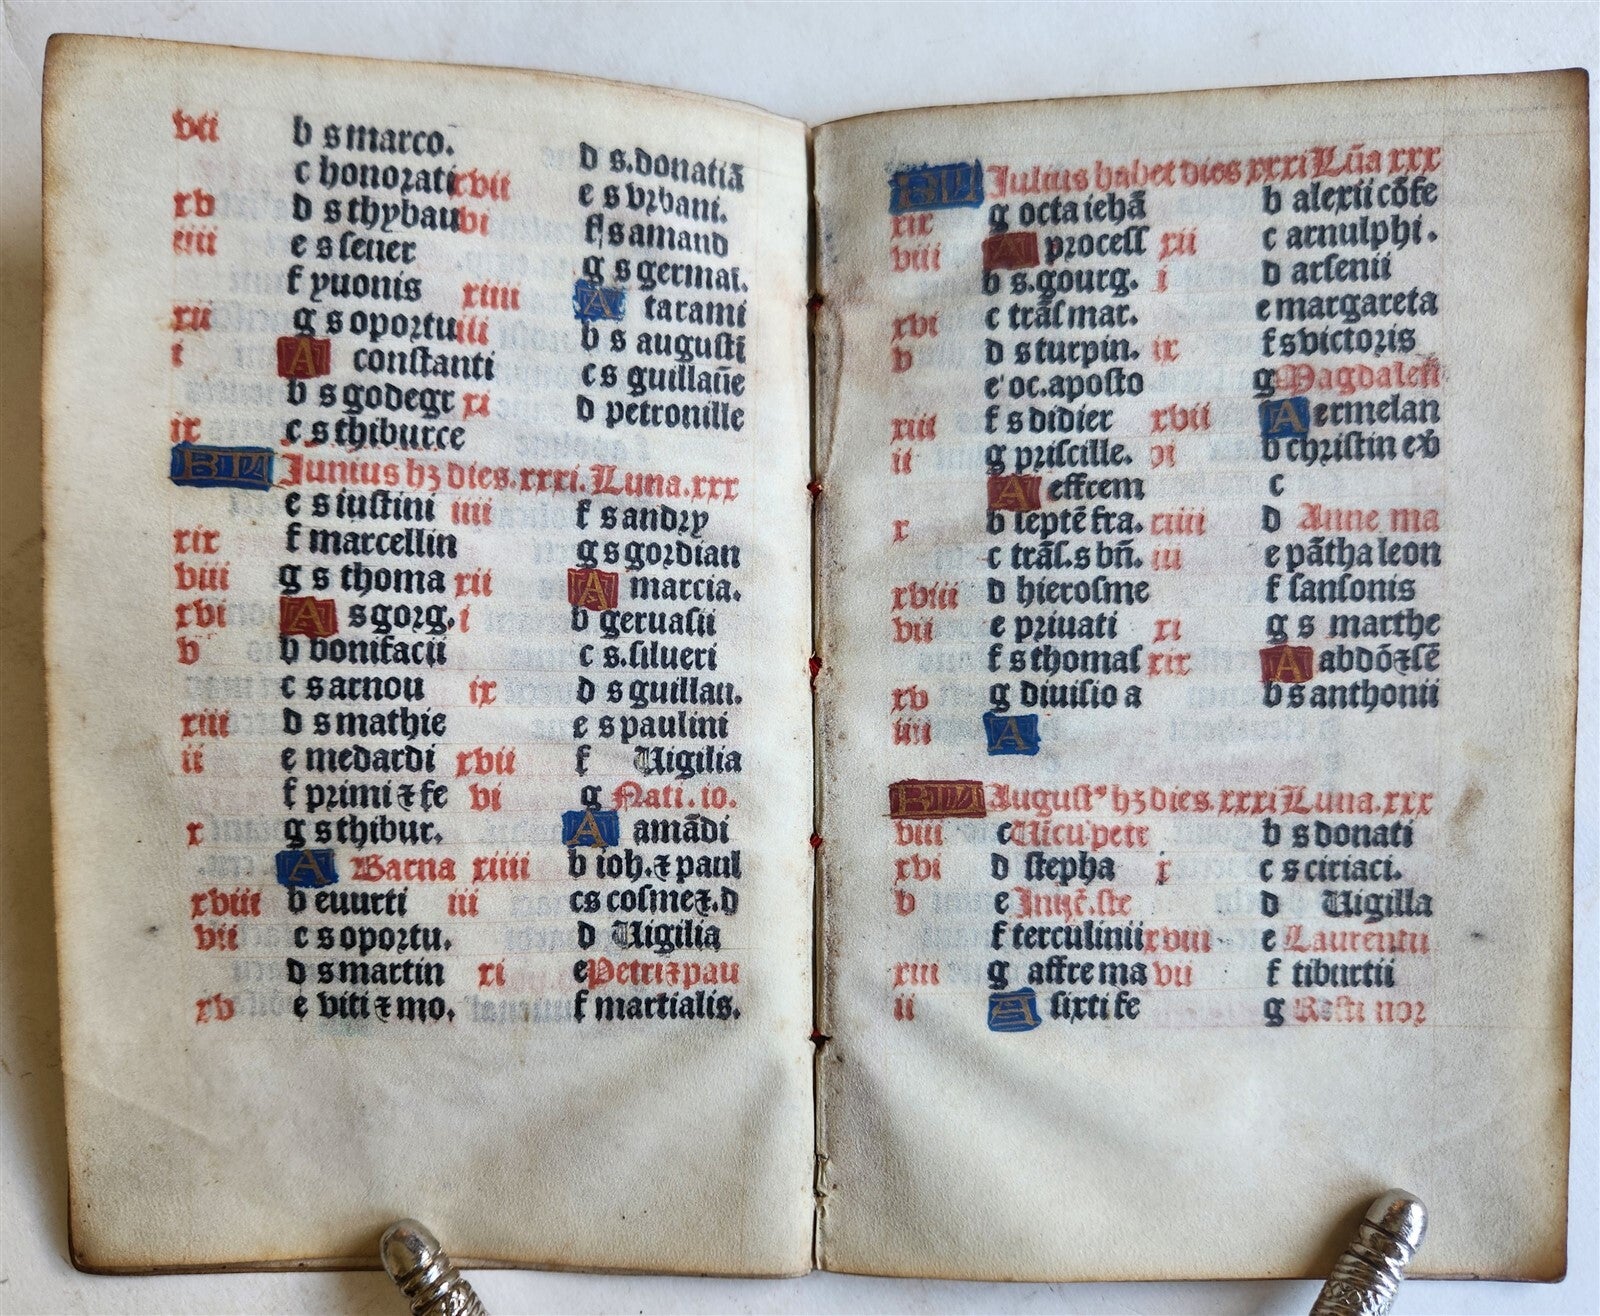 vii b s marco.
c honorati
xv d s thybau
iiii e s seuer
f yuonis
xii g s oportu
i A constanti
b s godegr
ix c s thiburce
xvii d s. donatiā
vi e s vrbani.
f s amand
g s germai.
xiiii A tarami
iii b s augusti
c s guillaūe
xi d petronille
KL Junius hꝫ dies. xxxi. Luna. xxx
e s iustini
xix f marcellin
viii g s thoma
xvi A s gorg.
v b bonifacii
c s arnou
xiii d s mathie
ii e medardi
f primi ⁊ fe
x g s thibur.
A Barna
xviii b euurti
vii c s oportu.
d s martin
xv e viti ⁊ mo.
iiii f s andry
g s gordian
xii A marcia.
i b geruasii
c s. silueri
ix d s guillau.
e s paulini
xvii f Uigilia
vi g Nati. io.
A amādi
xiiii b ioh. ⁊ paul
iii c s cosme ⁊. d
d Uigilia
xi e Petri ⁊ pau
f martialis.
KL Julius habet dies xxxi Lūa xxx
xix g octa iehā
viii A process
b s. gourg.
xvi c trāſ mar.
v d s turpin.
e oc. aposto
xiii f s didier
ii g priscille.
A effcem
x b leptē fra.
c trāſ. s bn̄.
xviii d hierosme
vii e priuati
f s thomas
xv g diuisio a
iiii A
b alexii cōfe
xii c arnulphi.
i d arsenii
e margareta
ix f s victoris
g Magdalen
xvii A ermelan
vi b christin
c
xiiii d Anne ma
iii e pātha leon
f sansonis
xi g s marthe
xix A abdō ⁊ sē
b s anthonii
KL August⁹ hꝫ dies. xxxi Luna. xxx
viii c Uicu petr
xvi d stepha
v e
f terculinii
xiii g affre ma
ii A sixti fe
b s donati
x c s ciriaci.
d Uigilla
xviii e Laurentii
vii f tiburtii
g